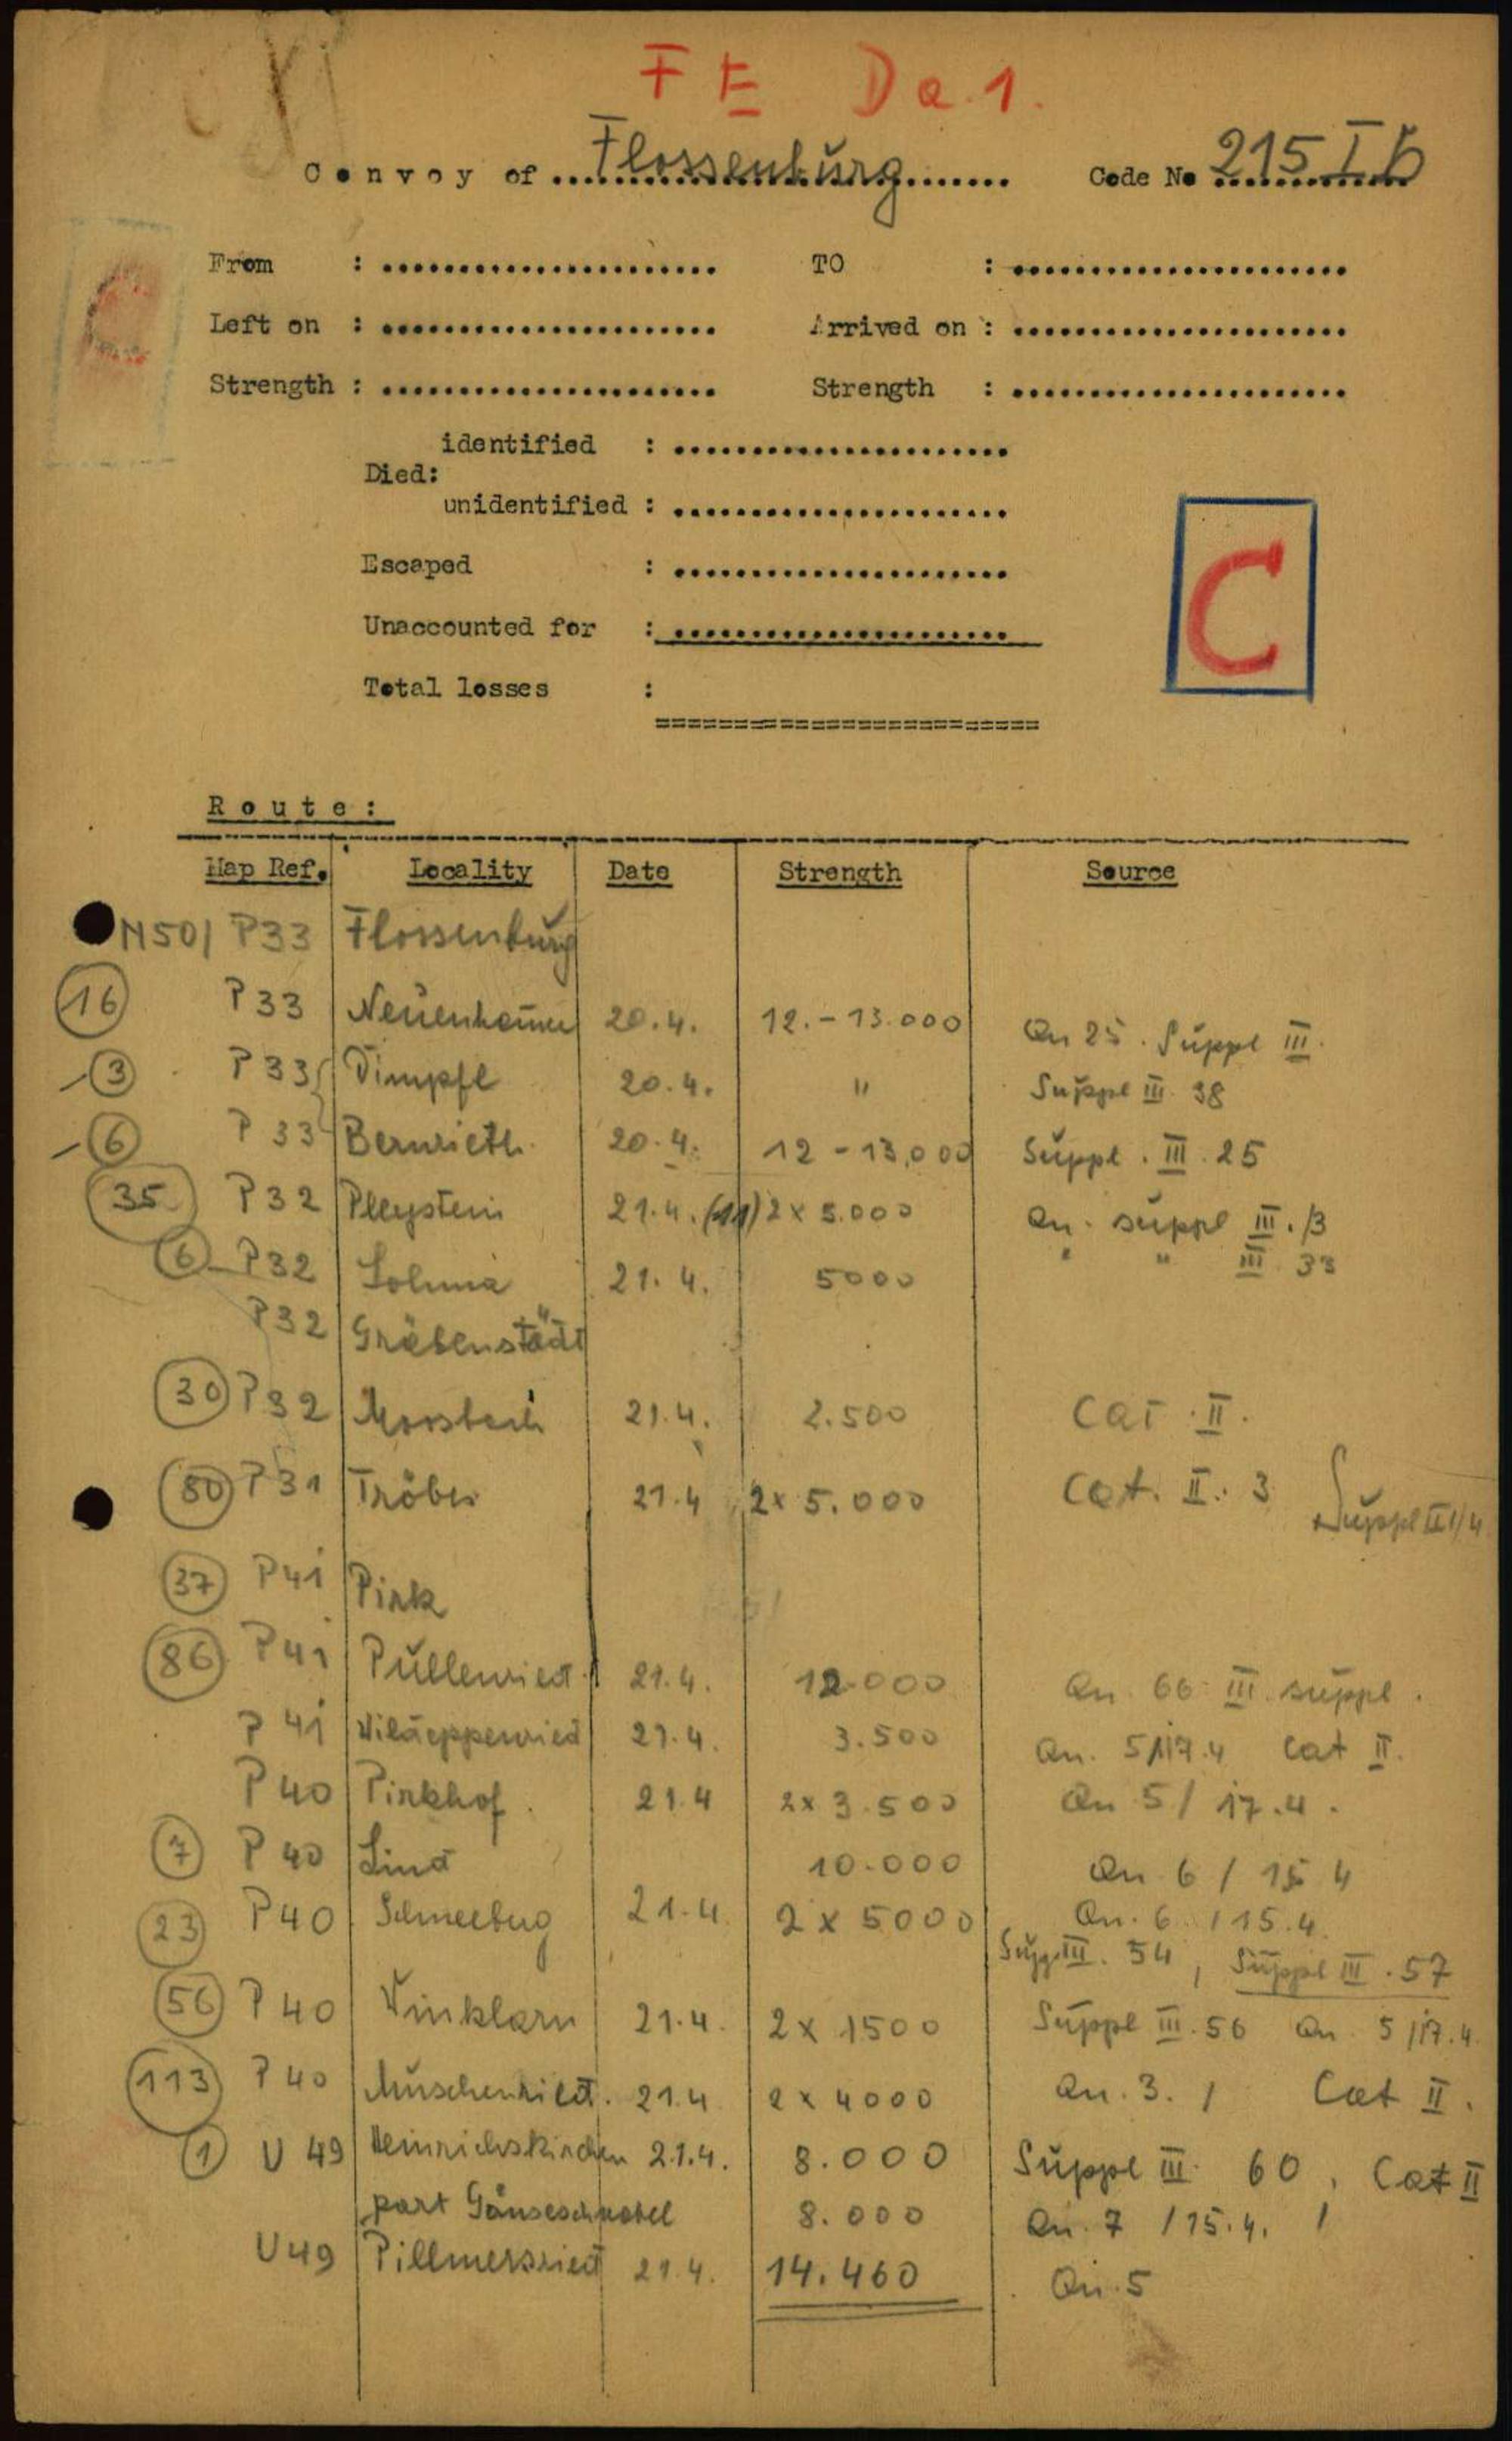 FE Da.1.
Convoy of ... Flossenbürg ... Code No 215 I b
From : ... TO : ...
Left on : ... Arrived on : ...
Strength : ... Strength : ...
identified : ...
Died:
unidentified : ...
Escaped : ...
Unaccounted for : ...
Total losses :
C
Route:
Map Ref. Locality Date Strength Source
N50/ P33 Flossenbürg
16 P33 Neuenhammer 20.4. 12.-13.000 Qu 25. Suppl III.
3 P33 Dimpfl 20.4. " Suppl III. 38
6 P33 Bernrieth. 20.4. 12-13,000 Suppl. III. 25
35 P32 Pleystein 21.4. (11) 2x5.000 Qu. suppl III. 13
6 P32 Lohma 21.4. 5000 " " III 33
P32 Gröbenstädt
30 P32 Moosbach 21.4. 2.500 Cat. II.
80 P31 Tröbes 21.4 2x5.000 Cat. II. 3 Suppl III/4
37 P41 Pirk
86 P41 Pullenried. 21.4. 12.000 Qu. 66 III. suppl.
P41 Wildeppenried 21.4. 3.500 Qu. 5/17.4 Cat II.
P40 Pirkhof. 21.4 2x3.500 Qu 5/ 17.4.
7 P40 Lind 10.000 Qu 6 / 15 4
23 P40 Schneeberg 21.4. 2x5000 Qu. 6. / 15.4.
Supp III. 54, Suppl III. 57
56 P40 Winklarn 21.4. 2x1500 Suppl III. 56 Qu. 5/17.4.
113 P40 Muschenried. 21.4 2x4000 Qu. 3. / Cat II.
1 U49 Heinrichskirchen 21.4. 8.000 Suppl III. 60, Cat II
part Gänseschnabel 8.000 Qu. 7 /15.4. /
U49 Pillmersried 21.4. 14.460 Qu. 5